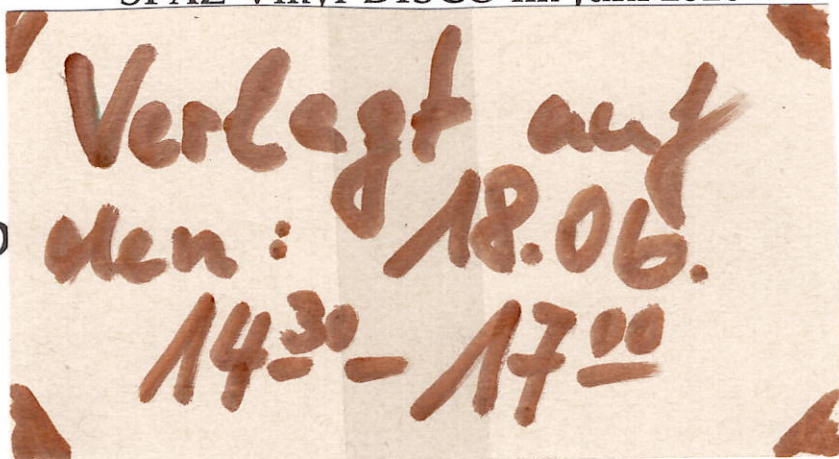 Verlagt auf
den: 18.06.
14³⁰ – 17⁰⁰